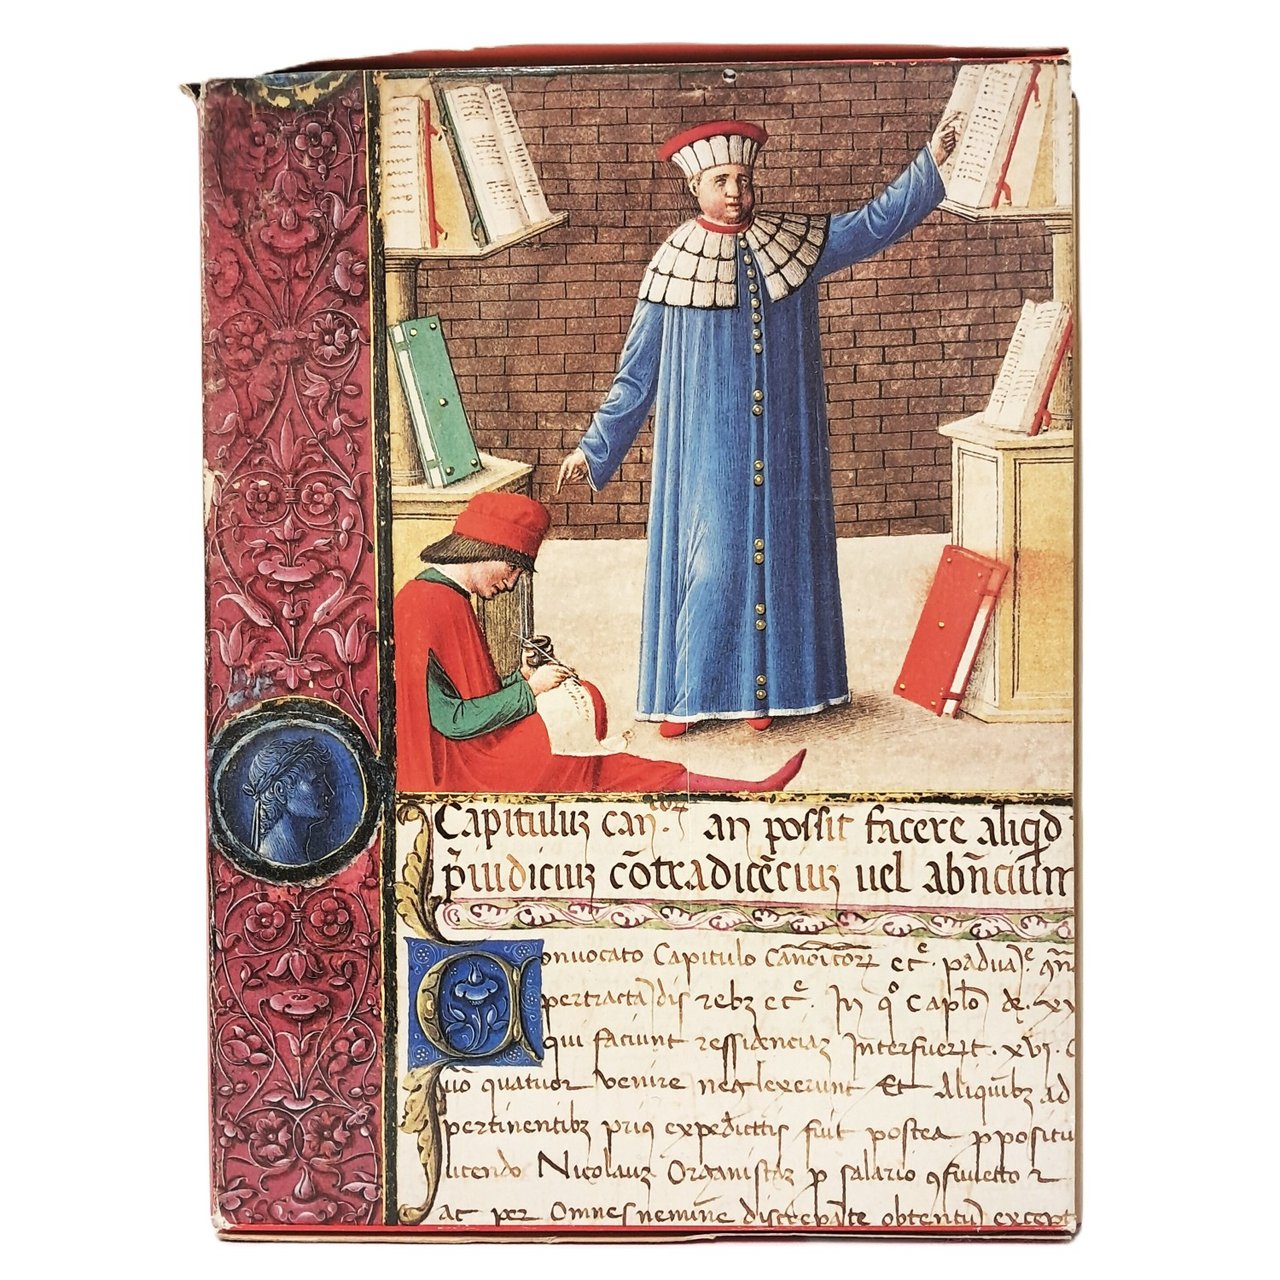 Capitulũ can.coꝝ an possit facere aliqd
p̃iudiciuʒ cõtradicẽciuʒ uel abñcium
Conuocato Capitulo Canõicoꝝ ecͨ. padua.ͤ
pertracta dis rebʒ ecͨ. In qͦ Caplo
qui faciunt ressidenciaʒ Interfuerũt. xvi.
quatuor venire neglexerunt Et Aliquibʒ ad
pertinentibʒ priꝯ expedicttis fuit postea ꝓpositu
dicendo Nicolauʒ Organistaʒ ꝑ salario
ac per Omnes nemine discrepãte obtentũ except